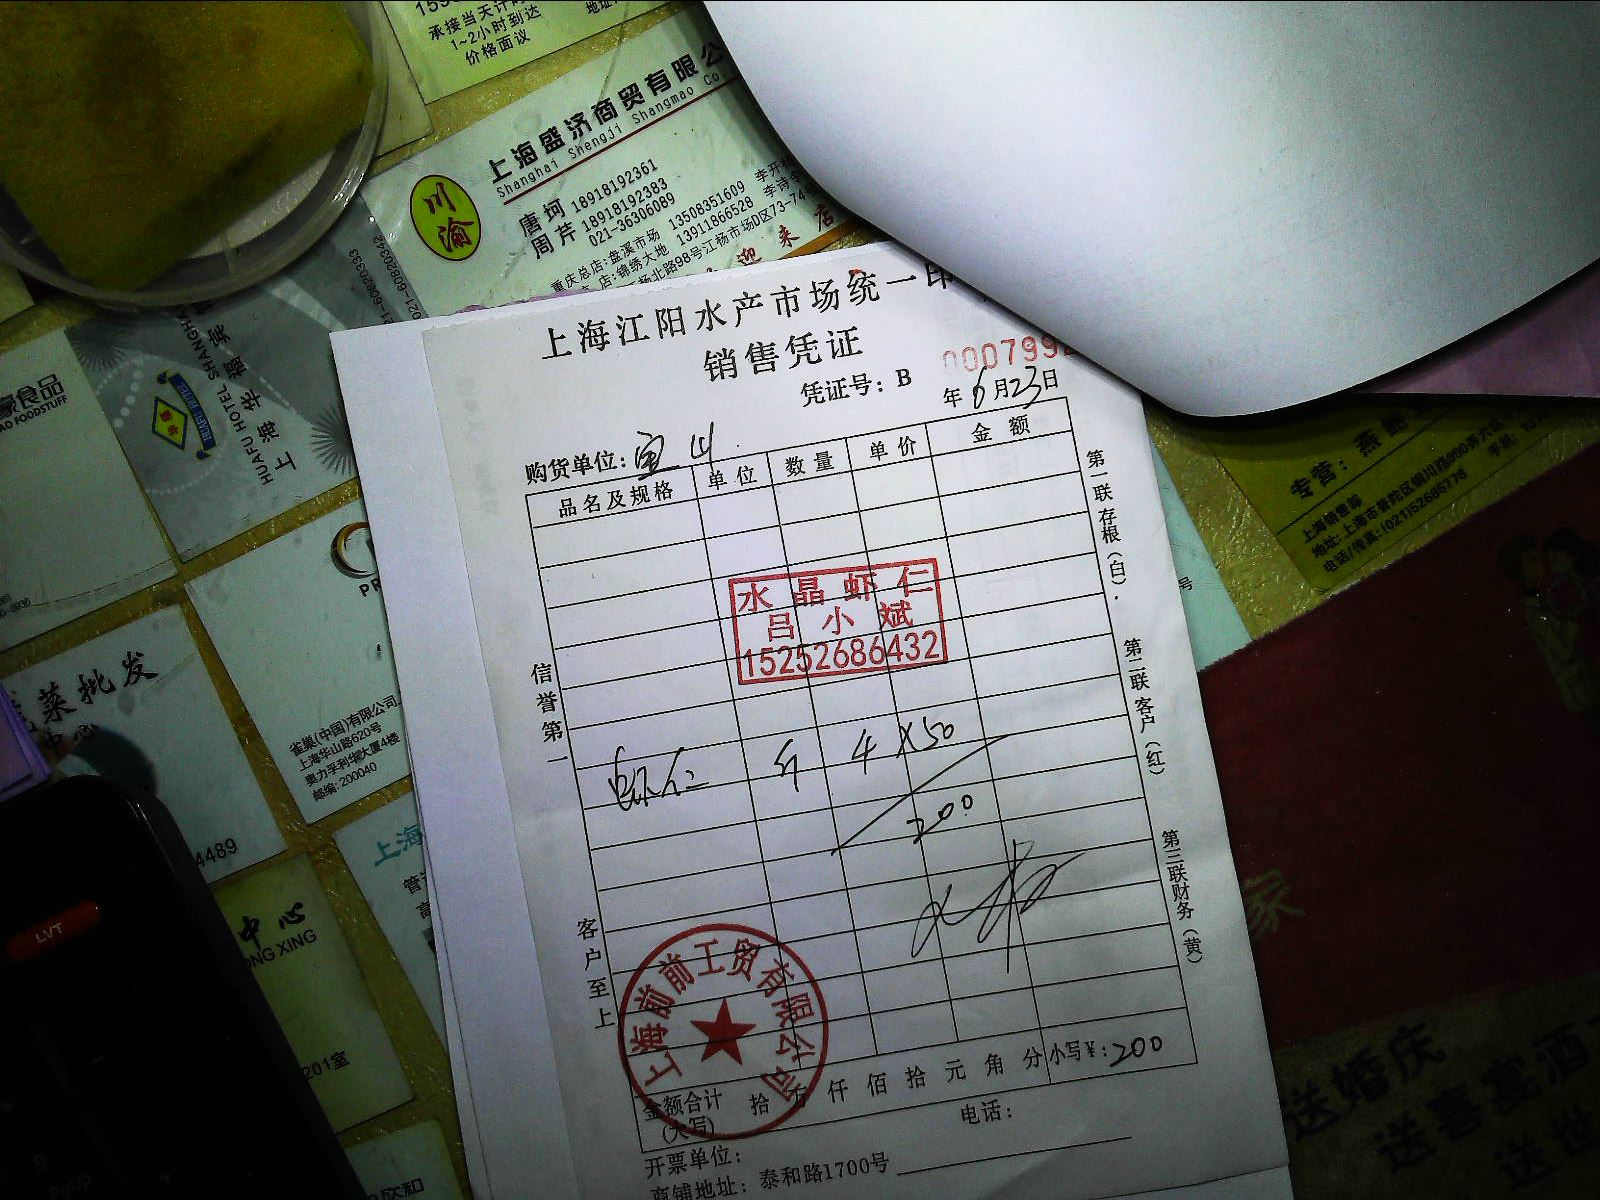 承接当天计
1~2小时到达
价格面议
上海盛济商贸有限公
Shanghai Shengji Shangmao Co
川渝
唐 珂 18918192361
周 芹 18918192383
021-36306089
重庆总店:盘溪市场 13508351609 李开
店:锦绣大地 13911866528 李诗
杨北路98号江杨市场D区73-74
迎 来 店
021-60820333
021-60820342
HUAFU HOTEL SHANGHA
上海华福宾
豪食品
AO FOODSTUFF
菜批发
中心
4489
雀巢(中国)有限公司
上海华山路620号
奥力孚利华大厦4楼
邮编: 200040
上海
中心
NG XING
201室
LVT
上海江阳水产市场统一印
销售凭证
凭证号: B
000799
年 6 月 23 日
购货单位: 宝山
品名及规格 单位 数量 单价 金额
水晶虾仁
吕小斌
15252686432
虾仁 斤 4 X50
200
信誉第一
客户至上
第一联存根(白).
第二联客户(红)
第三联财务(黄)
上海前前工贸有限公司
金额合计
(大写)
拾 万 仟 佰 拾 元 角 分 小写¥: 200
电话:
开票单位:
商铺地址: 泰和路1700号
专营: 燕鲍
上海销售部
地址: 上海市普陀区铜川路990弄六区
电话/传真: (021)52686778
手机:
号
家
送婚庆
送喜宴酒
送世